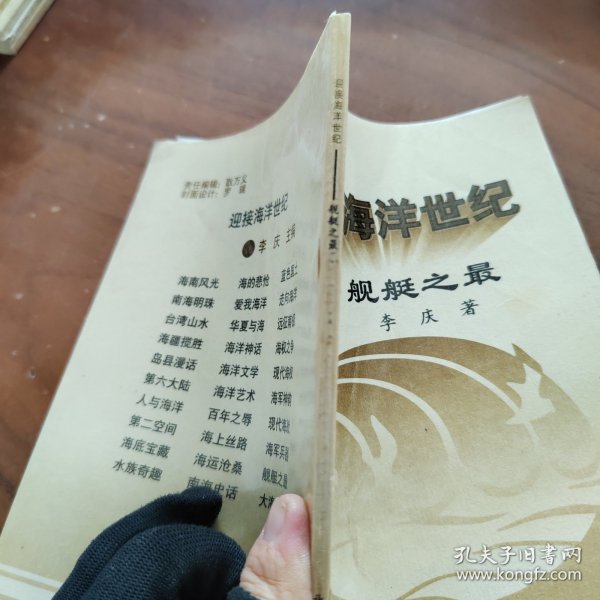 迎接海洋世纪——舰艇之最
责任编辑：耿万义
封面设计：罗
迎接海洋世纪
李庆 主编
海南风光 海的悲怆 蓝色国土
南海明珠 爱我海洋 走向海洋
台湾山水 华夏与海
海疆揽胜 海洋神话 海权之争
岛县漫话 海洋文学
第六大陆 海洋艺术
人与海洋 百年之辱
第二空间 海上丝路 海军兵器
海底宝藏 海运沧桑 舰艇之最
水族奇趣 南海史话
海洋世纪
舰艇之最
李庆 著
孔夫子旧书网
www.kongfz.com